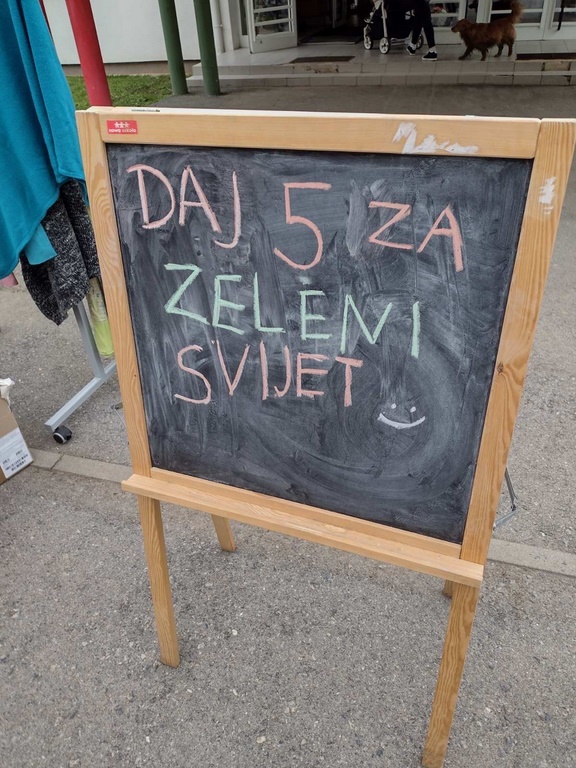 DAJ 5 ZA
ZELENI
SVIJET